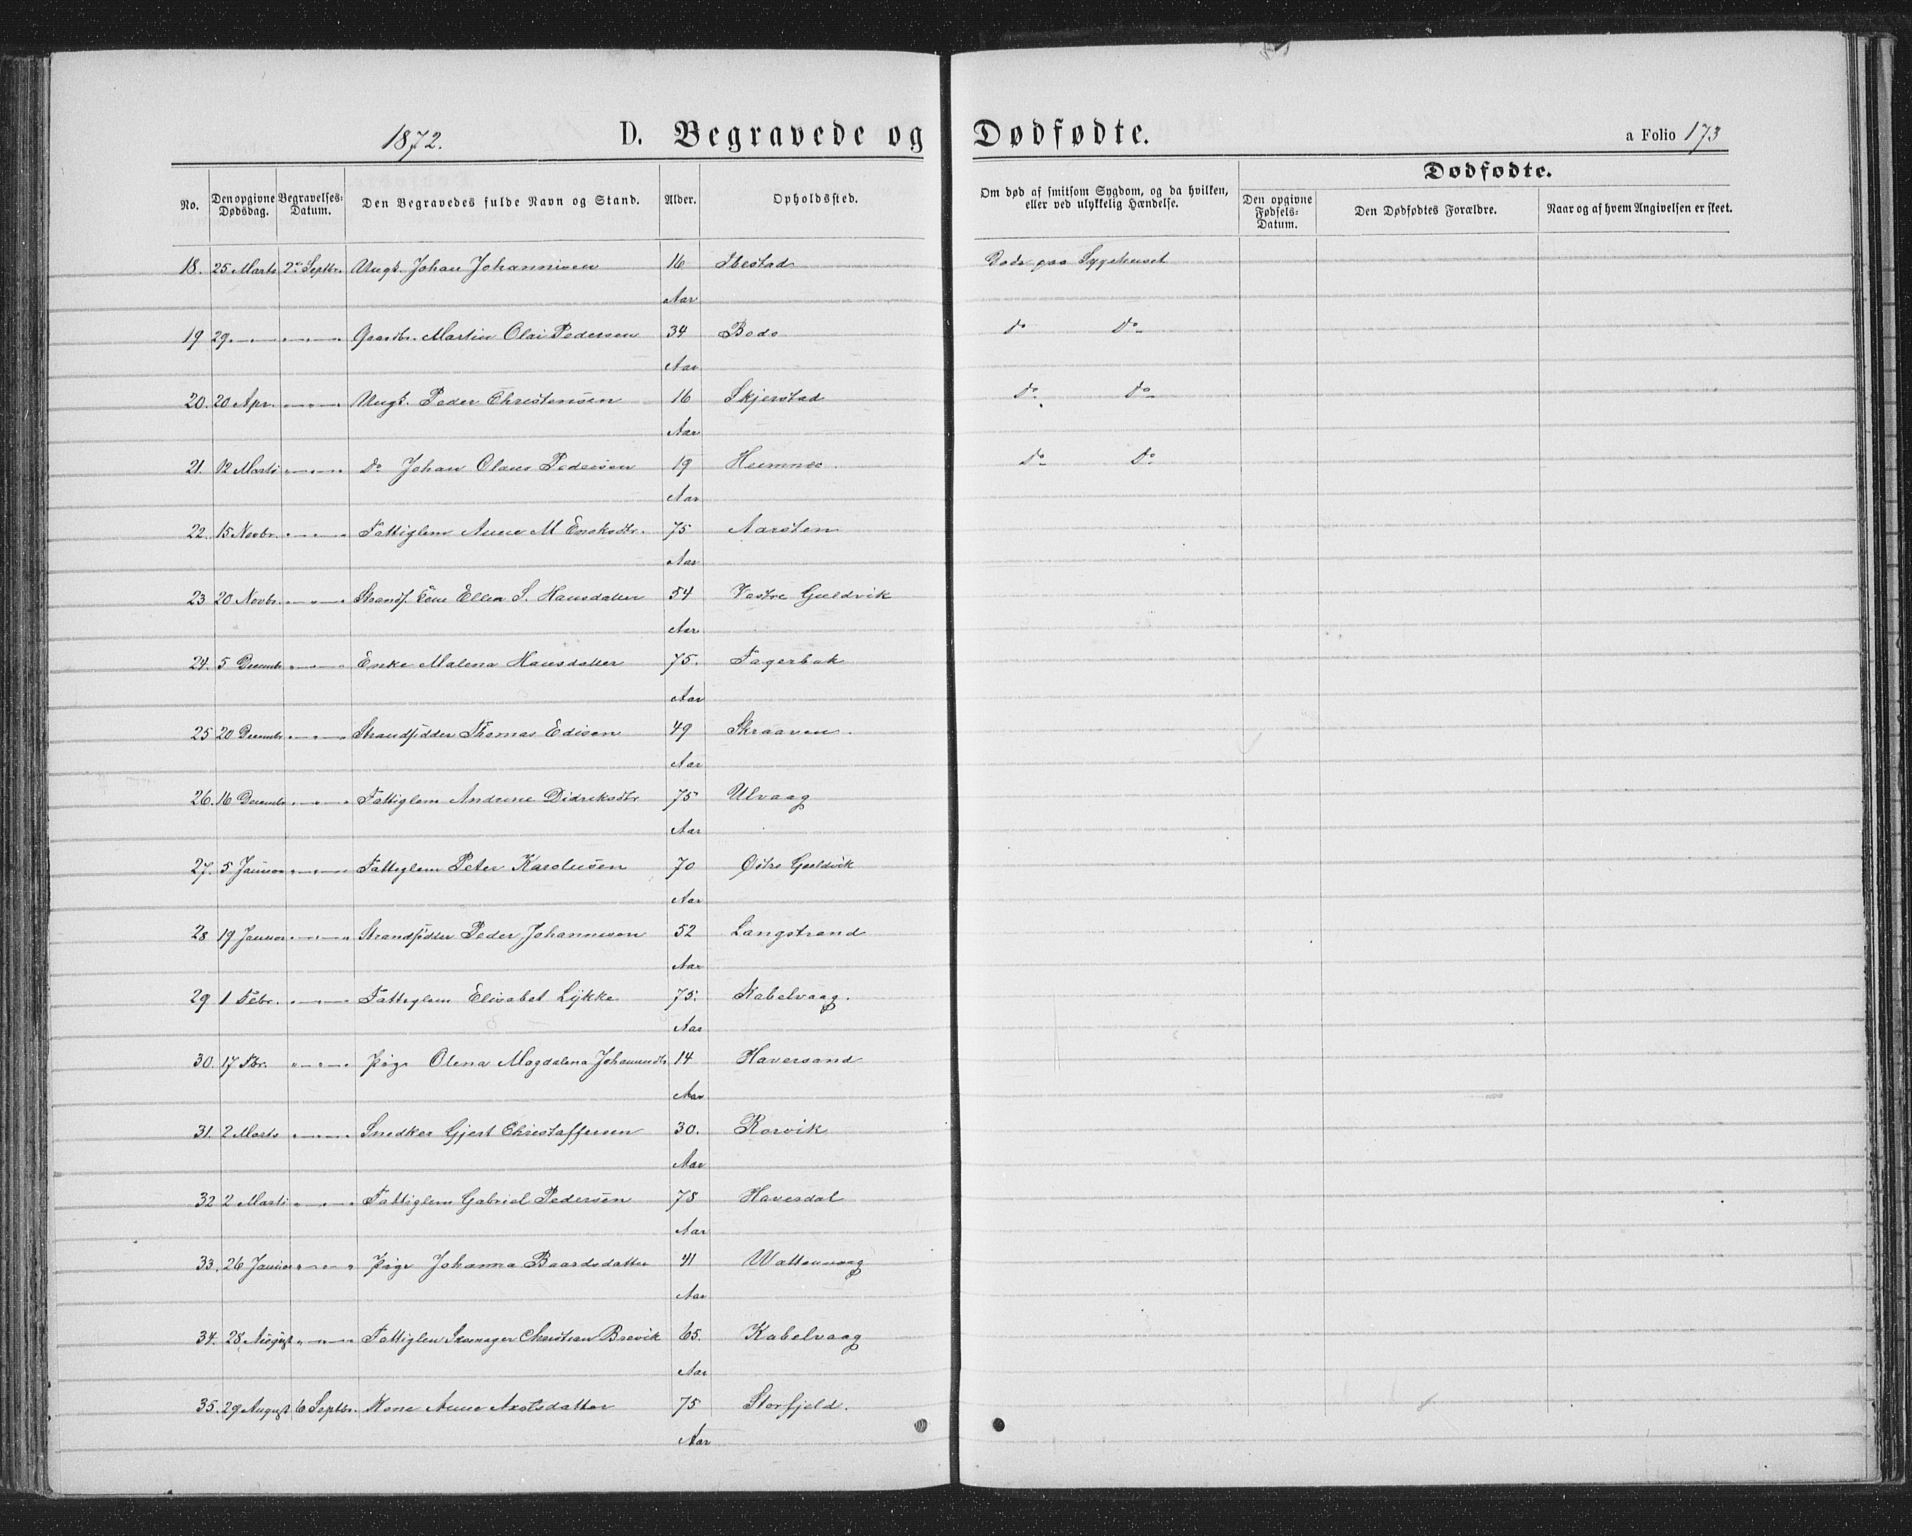 1872. D. Begravede og Dødfødte. a Folio 173
Dødfødte.
No. Den opgivne Dødsdag. Begravelses-Datum. Den Begravedes fulde Navn og Stand. Alder. Opholdssted. Om død af smitsom Sygdom, og da hvilken, eller ved ulykkelig Hændelse. Den opgivne Fødsels-Datum. Den Dødfødtes Forældre. Naar og af hvem Angivelsen er skeet.
18. 25 Marts 2 Septbr. Ungk. Johan Johannisen 16 Ibestad Døde paa Sygehuset
Aar
19 29 " Gaardbr. Martin Olai Pedersen 34 Bodo do do
Aar
20. 20 Apr. " Ungk. Peder Christensen 16 Skjerstad do do
Aar
21. 12 Marts " do Johan Olaus Pedersen 19 Hemnæs do do
Aar
22. 15 Novbr. " Fattiglem Anne M 75 Aarsten
Aar
23 20 Novbr. " Ellen S. Hansdatter 54 Vestre Gjeldvik
Aar
24. 5 Decembr " Enke Malena Hansdatter 75. Fagerbak
Aar
25 20 Decembr " Strandsidder Thomas Edisen 49 Skraaven
Aar
26. 16 Decembr " Fattiglem Andrine Didriksdtr 75 Ulvaag
Aar
27. 5 Januar " Fattiglem Peter Karolusen 70 Østre Gjeldvik
Aar
28 19 Januar " Strandsidder Peder Johannesen 52 Langstrand
Aar
29 1 Febr. " Fattiglem Elisabet Lykke 75. Kabelvaag.
Aar
30. 17 Fbr. " Pige Olena Magdalena 14 Haversand
Aar
31. 2 Marts " Snedker Gjert Christoffersen 30. Rorvik
Aar
32 2 Marts " Fattiglem Gabriel Pedersen 78 Havesdal
Aar
33. 26 Januar " Pige Johanna Baardsdatter 41
Aar
34. 28 August " Fattiglem Skomager Christian Brevik 65. Kabelvaag
Aar
35. 29 August 6 Septbr. Kone Anne 75 Storfjeld.
Aar